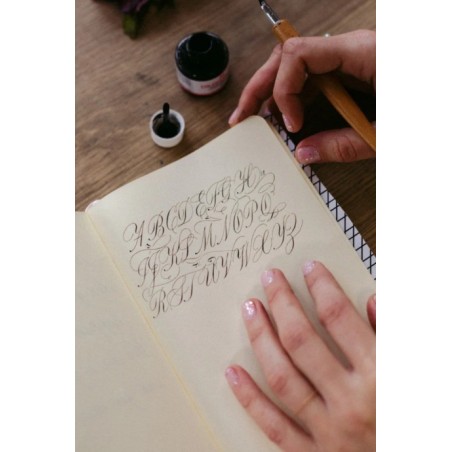 ABCDEFGH
IJKLMNOPQ
RSTUVWXYZ